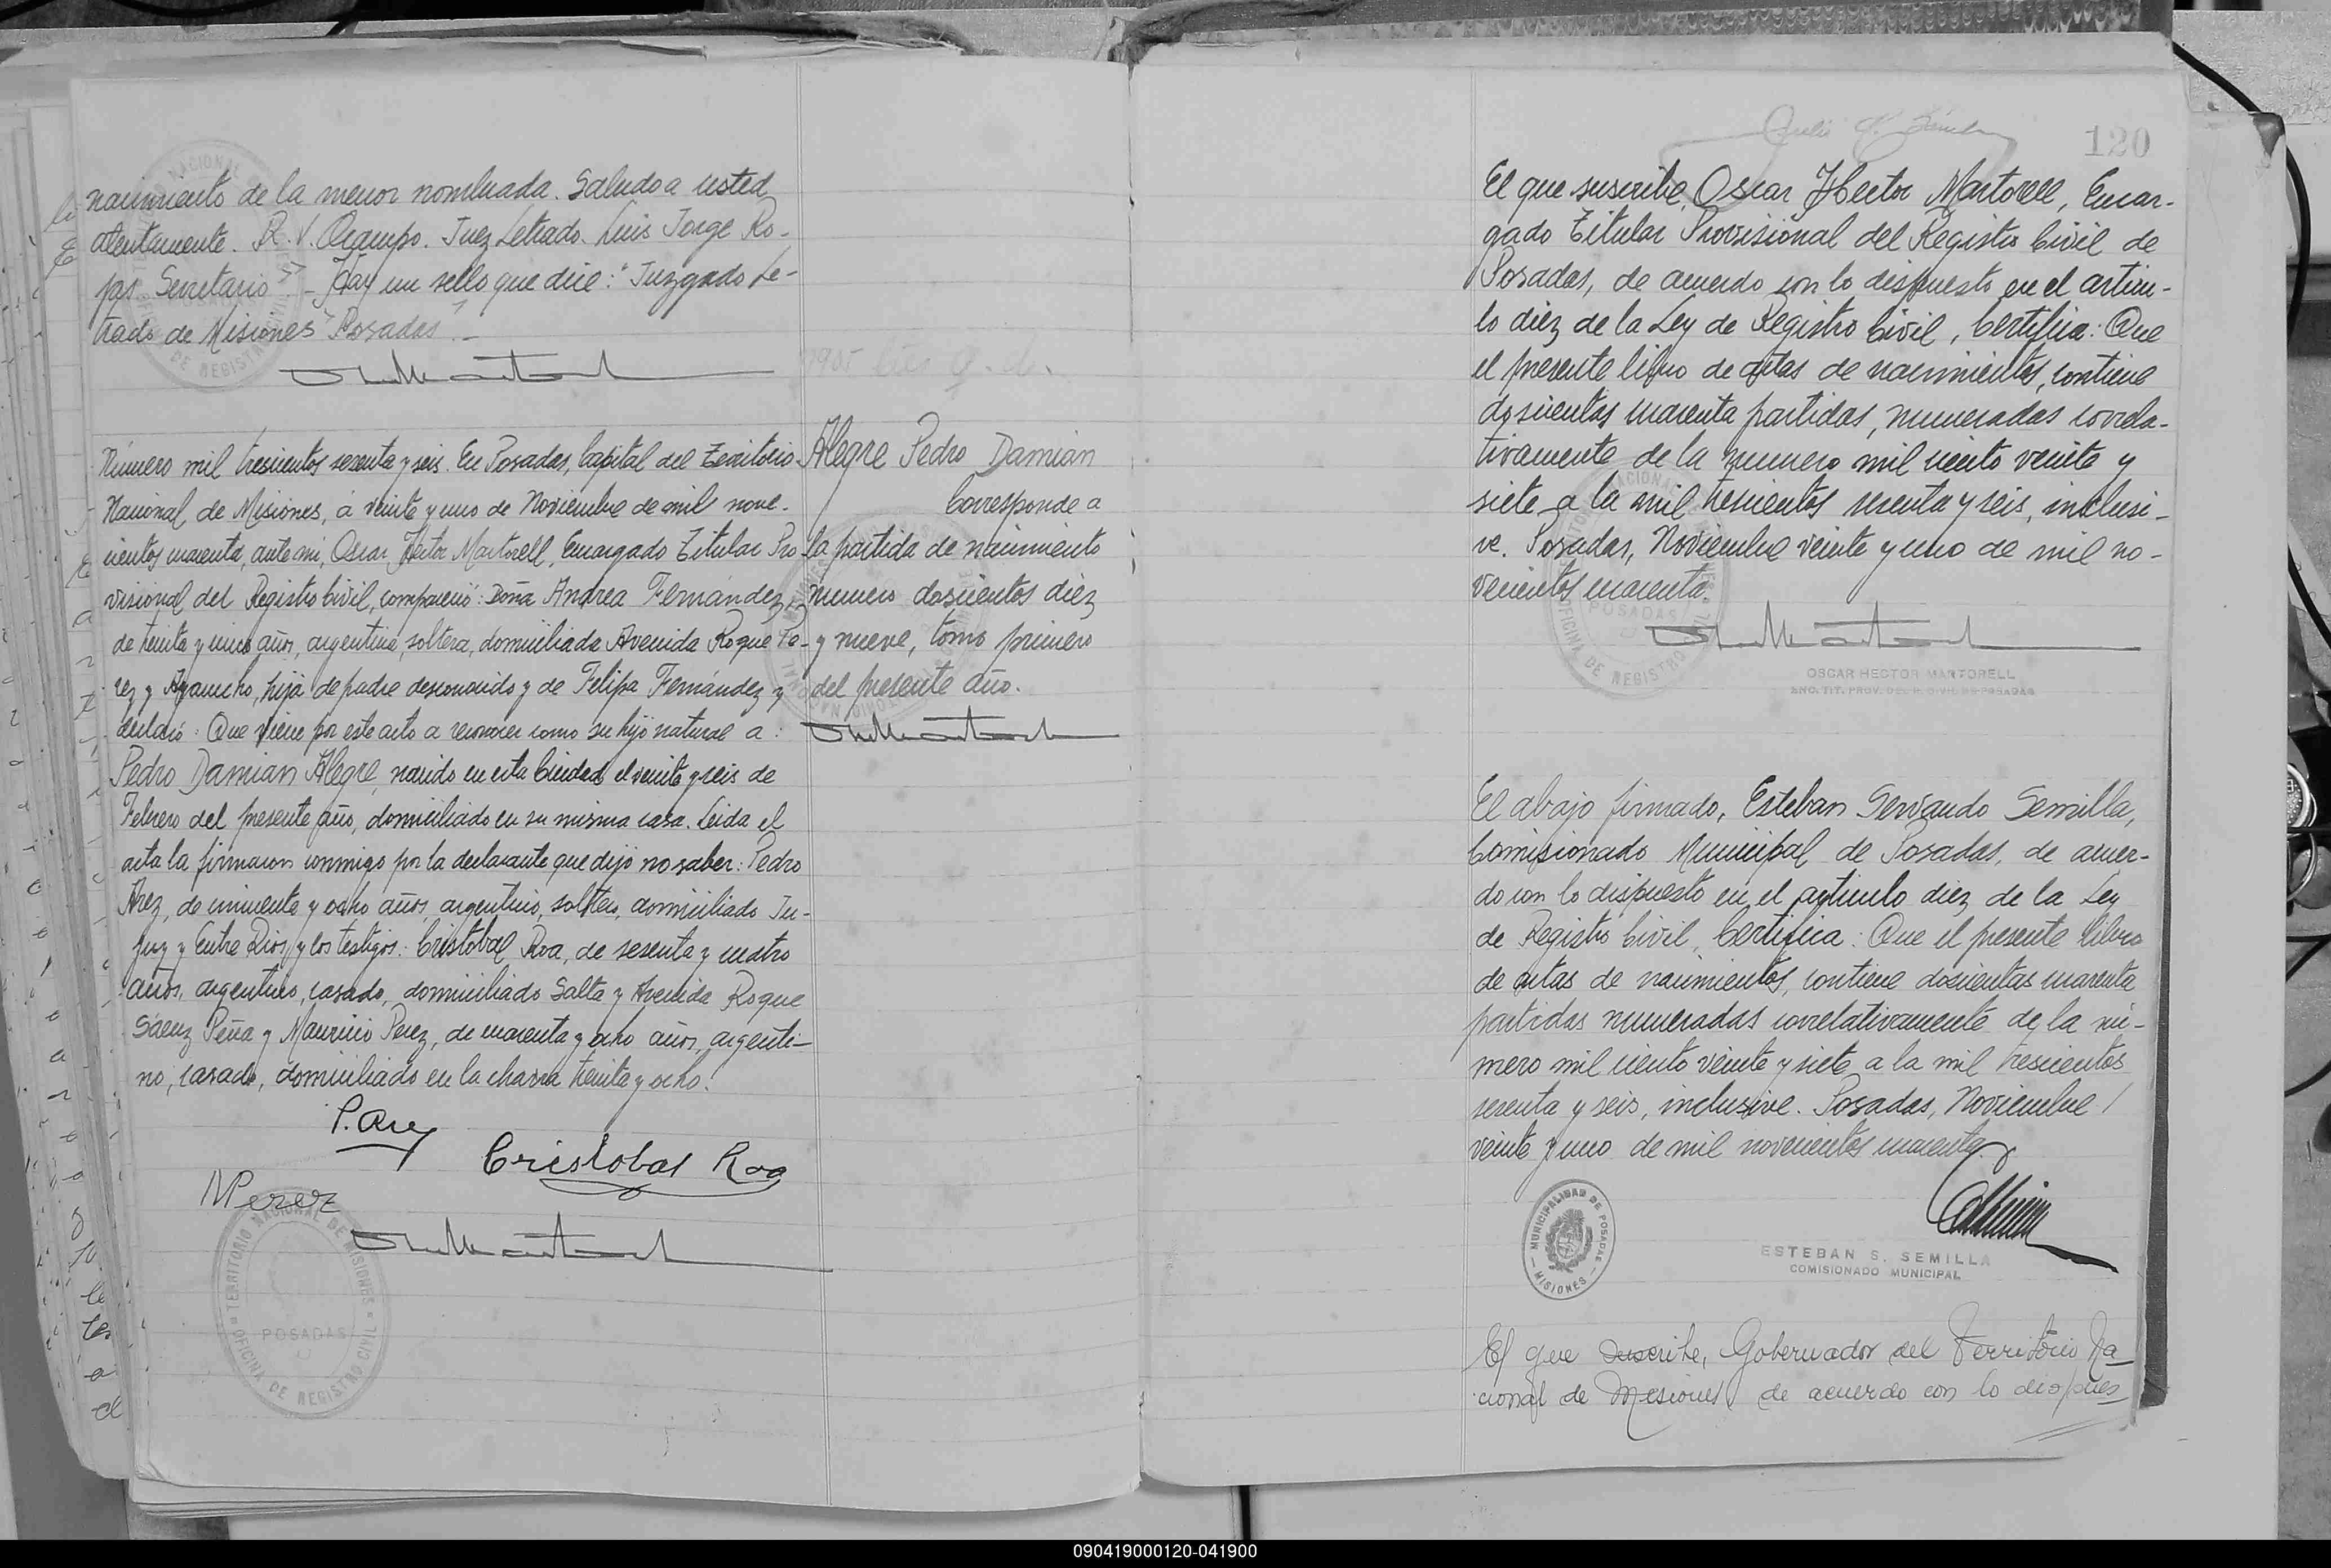 nacimiento de la menor nombrada. Saludo a usted
atentamente. R. V. Ocampo. Juez Letrado. Luis Jorge Ro-
jas Secretario" - Hay un sello que dice: "Juzgado Le-
trado de Misiones" Posadas".-
Número mil trescientos sesenta y seis. En Posadas, Capital del Territorio
Nacional de Misiones, á veinte y uno de Noviembre de mil nove-
cientos cuarenta, ante mi, Oscar Hector Martorell, Encargado Titular Pro-
visional del Registro Civil, compareció: Doña Andrea Fernández,
de treinta y cinco años, argentina, soltera, domiciliada Avenida Roque Pe-
rez y Ayacucho, hija de padre desconocido y de Felipa Fernández y
declaró: Que viene por este acto a reconocer como su hijo natural a:
Pedro Damian Alegre, nacido en esta Ciudad el veinte y seis de
Febrero del presente año, domiciliado en su misma casa. Leida el
acta la firmaron conmigo por la declarante que dijo no saber: Pedro
Arez, de cincuenta y ocho años, argentino, soltero, domiciliado Ju-
juy y Entre Rios, y los testigos: Cristobal Roa, de sesenta y cuatro
años, argentino, casado, domiciliado Salta y Avenida Roque
Sáenz Peña y Mauricio Perez, de cuarenta y ocho años, argenti-
no, casado, domiciliado en la chacra treinta y ocho.
P. Arez
Cristobal Roa
M Perez
TERRITORIO NACIONAL DE MISIONES
POSADAS
OFICINA DE REGISTRO CIVIL
Alegre Pedro Damian
Corresponde a
la partida de nacimiento
numero doscientos diez
y nueve, tomo primero
del presente año.
120
El que suscribe, Oscar Hector Martorell, Encar-
gado Titular Provisional del Registro Civil de
Posadas, de acuerdo con lo dispuesto en el articu-
lo diez de la Ley de Registro Civil, Certifica: Que
el presente libro de actas de nacimientos, contiene
doscientas cuarenta partidas, numeradas correla-
tivamente de la numero mil ciento veinte y
siete a la mil trescientos sesenta y seis, inclusi-
ve. Posadas, Noviembre veinte y uno de mil no-
vecientos cuarenta.
OSCAR HECTOR MARTORELL
ENC. TIT. PROV. DEL R. CIVIL DE POSADAS
El abajo firmado, Esteban Servando Semilla,
Comisionado Municipal de Posadas, de acuer-
do con lo dispuesto en el articulo diez de la Ley
de Registro Civil, Certifica: Que el presente libro
de actas de nacimientos, contiene doscientas cuarenta
partidas numeradas correlativamente de la nú-
mero mil ciento veinte y siete a la mil trescientos
sesenta y seis, inclusive. Posadas, Noviembre
veinte y uno de mil novecientos cuarenta
MUNICIPALIDAD DE POSADAS
MISIONES
ESTEBAN S. SEMILLA
COMISIONADO MUNICIPAL
El que suscribe, Gobernador del Territorio Na-
cional de Misiones de acuerdo con lo dispues-
090419000120-041900